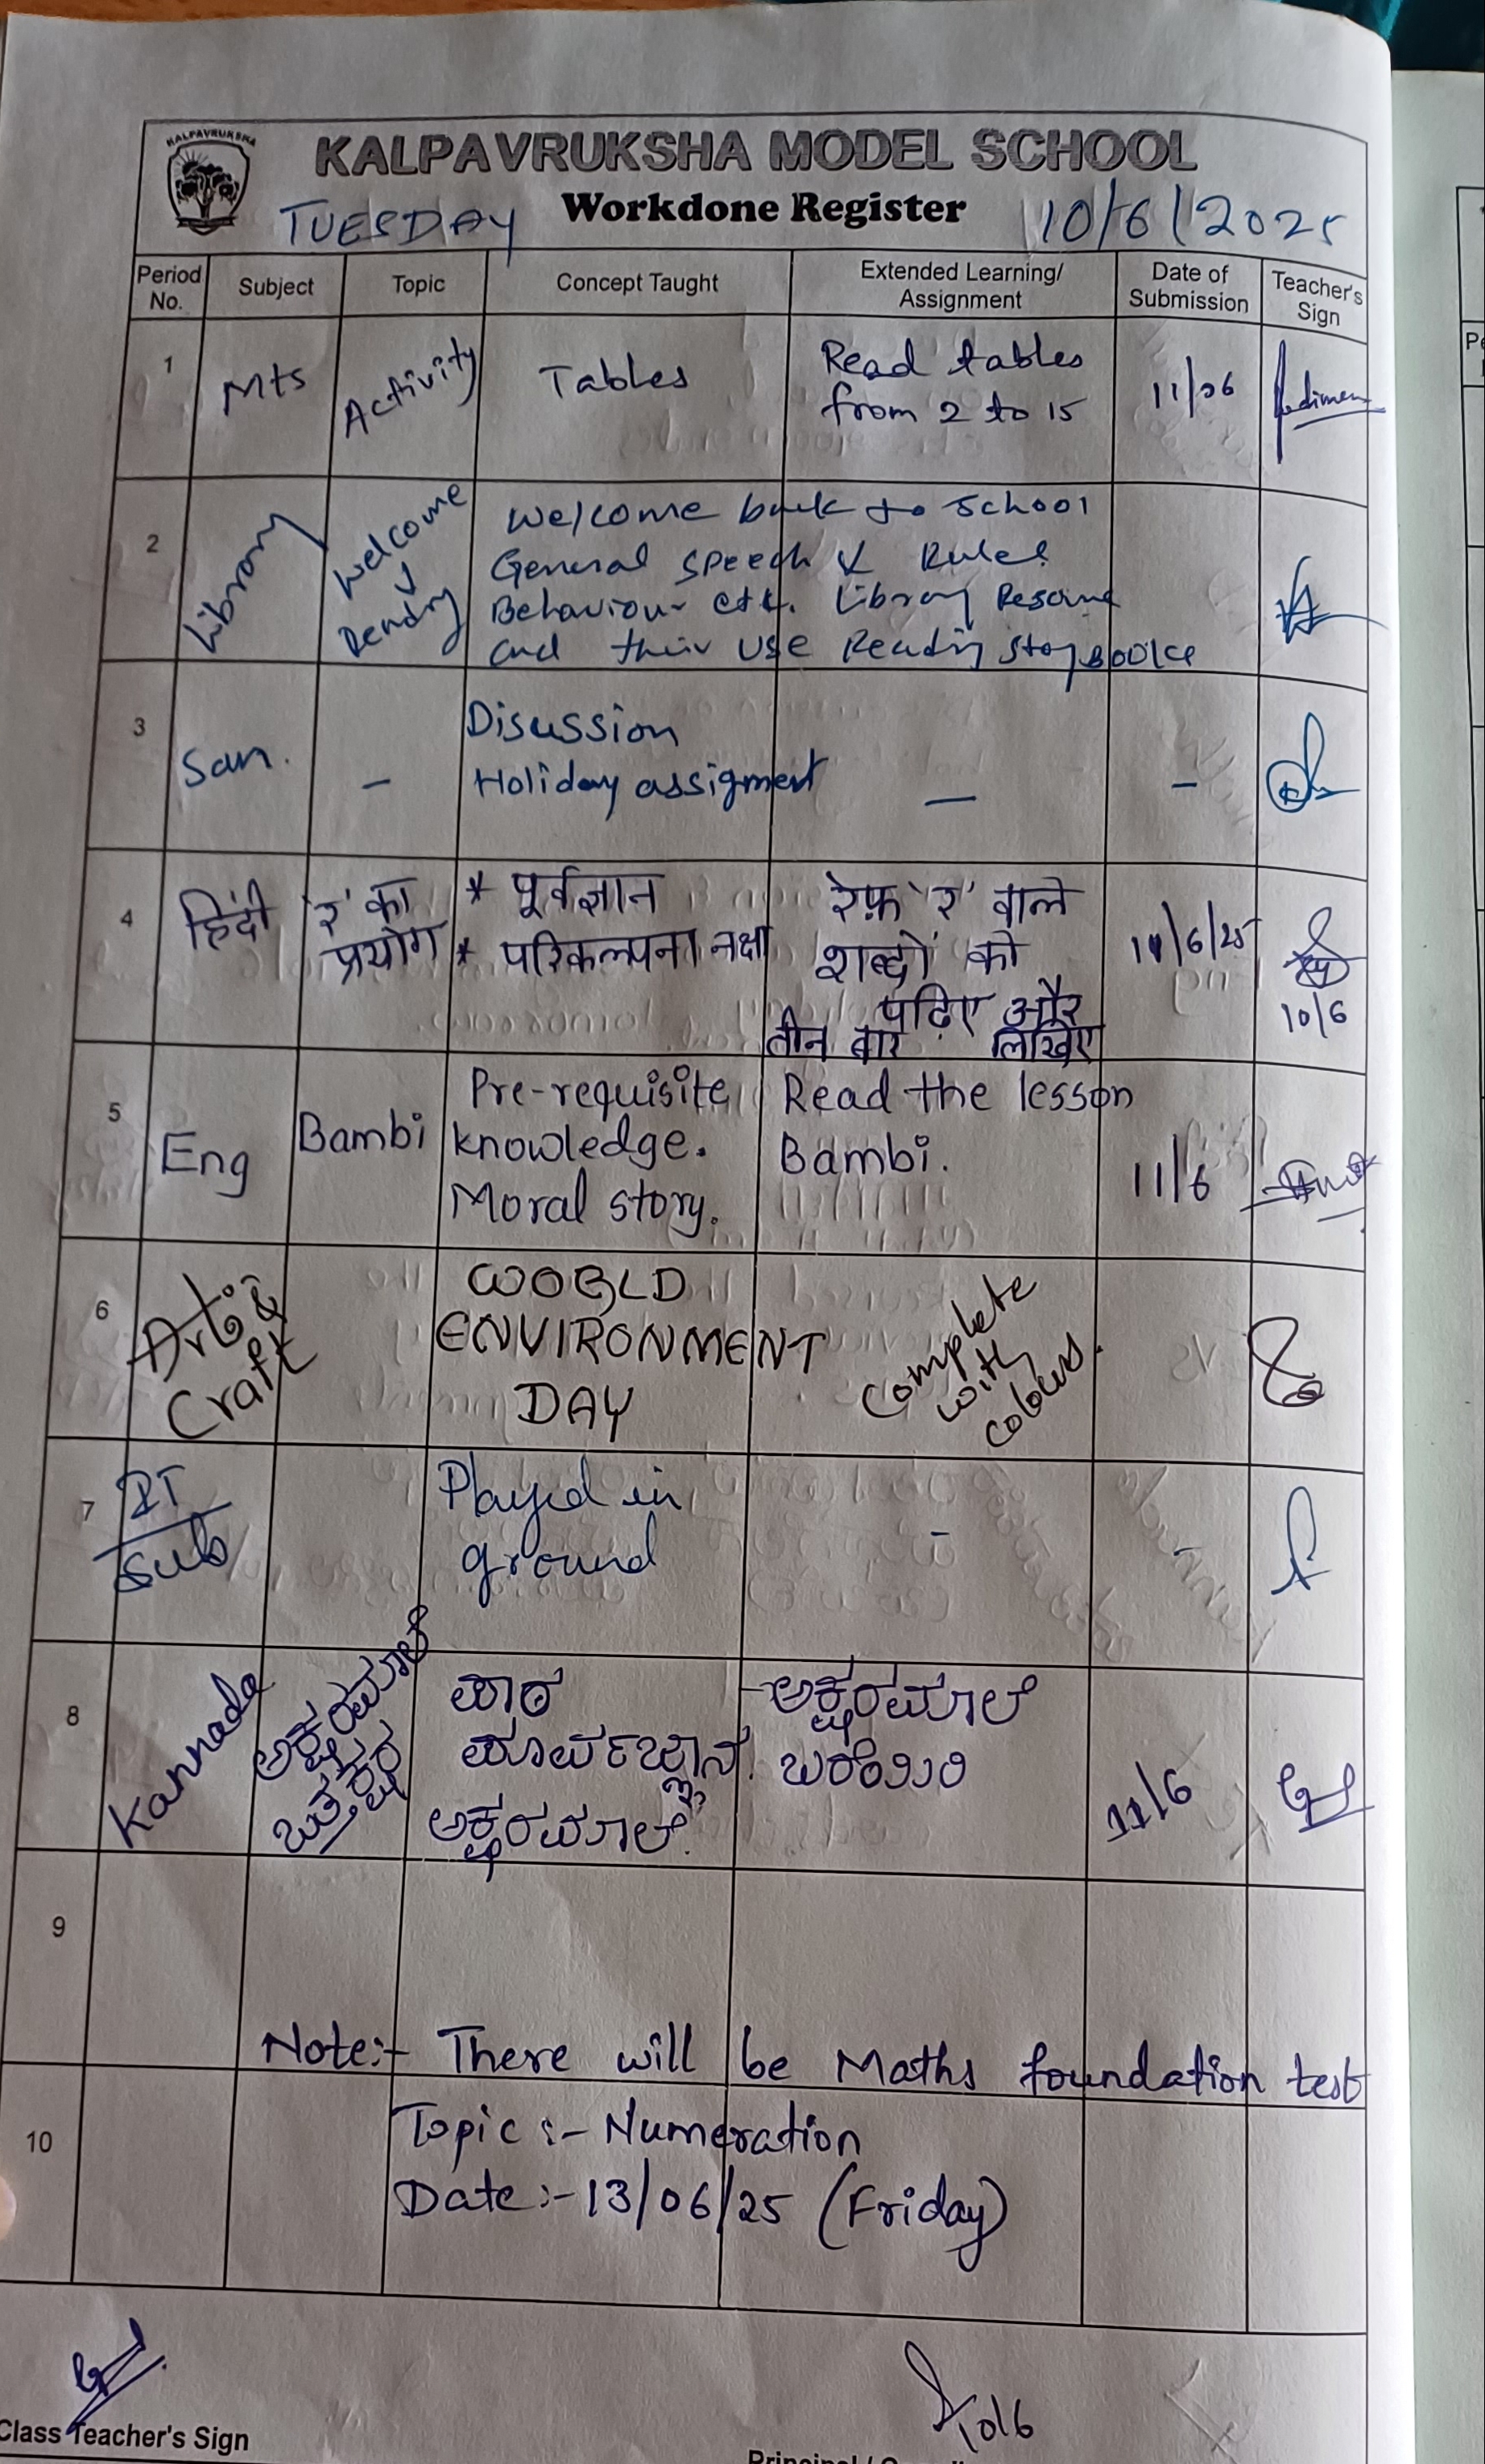 KALPAVRUKSHA
KALPAVRUKSHA MODEL SCHOOL
Workdone Register
TUESDAY
10/6/2025
Period No.
Subject
Topic
Concept Taught
Extended Learning/
Assignment
Date of
Submission
Teacher's
Sign
1
Mts
Activity
Tables
Read tables
from 2 to 15
11/06
2
Library
Welcome
Welcome back to School
General Speech & Rules
Behaviour etc. Library
and their use Reading story Books
3
San.
-
Discussion
Holiday assigment
-
-
4
हिंदी
'र' का
प्रयोग
* पूर्वज्ञान
* परिकल्पना नक्षा
रेफ़ 'र' वाले
शब्दों को
पढ़िए और
तीन बार लिखिए
/6/25
10/6
5
Eng
Bambi
Pre-requisite
knowledge.
Moral story.
Read the lesson
Bambi.
11/6
6
Art &
Craft
WORLD
ENVIRONMENT
DAY
Complete
with
colours.
7
Sub
Played in
ground
-
-
8
Kannada
ಅಕ್ಷರಮಾಲೆ
ಪಾಠ
ಪೂರ್ವಜ್ಞಾನ.
ಅಕ್ಷರಮಾಲೆ.
-ಅಕ್ಷರಮಾಲೆ
ಬರೆಯಿರಿ
11/6
9
Note:- There will be Maths foundation test
10
Topic :- Numeration
Date :- 13/06/25 (Friday)
10/6
Class Teacher's Sign